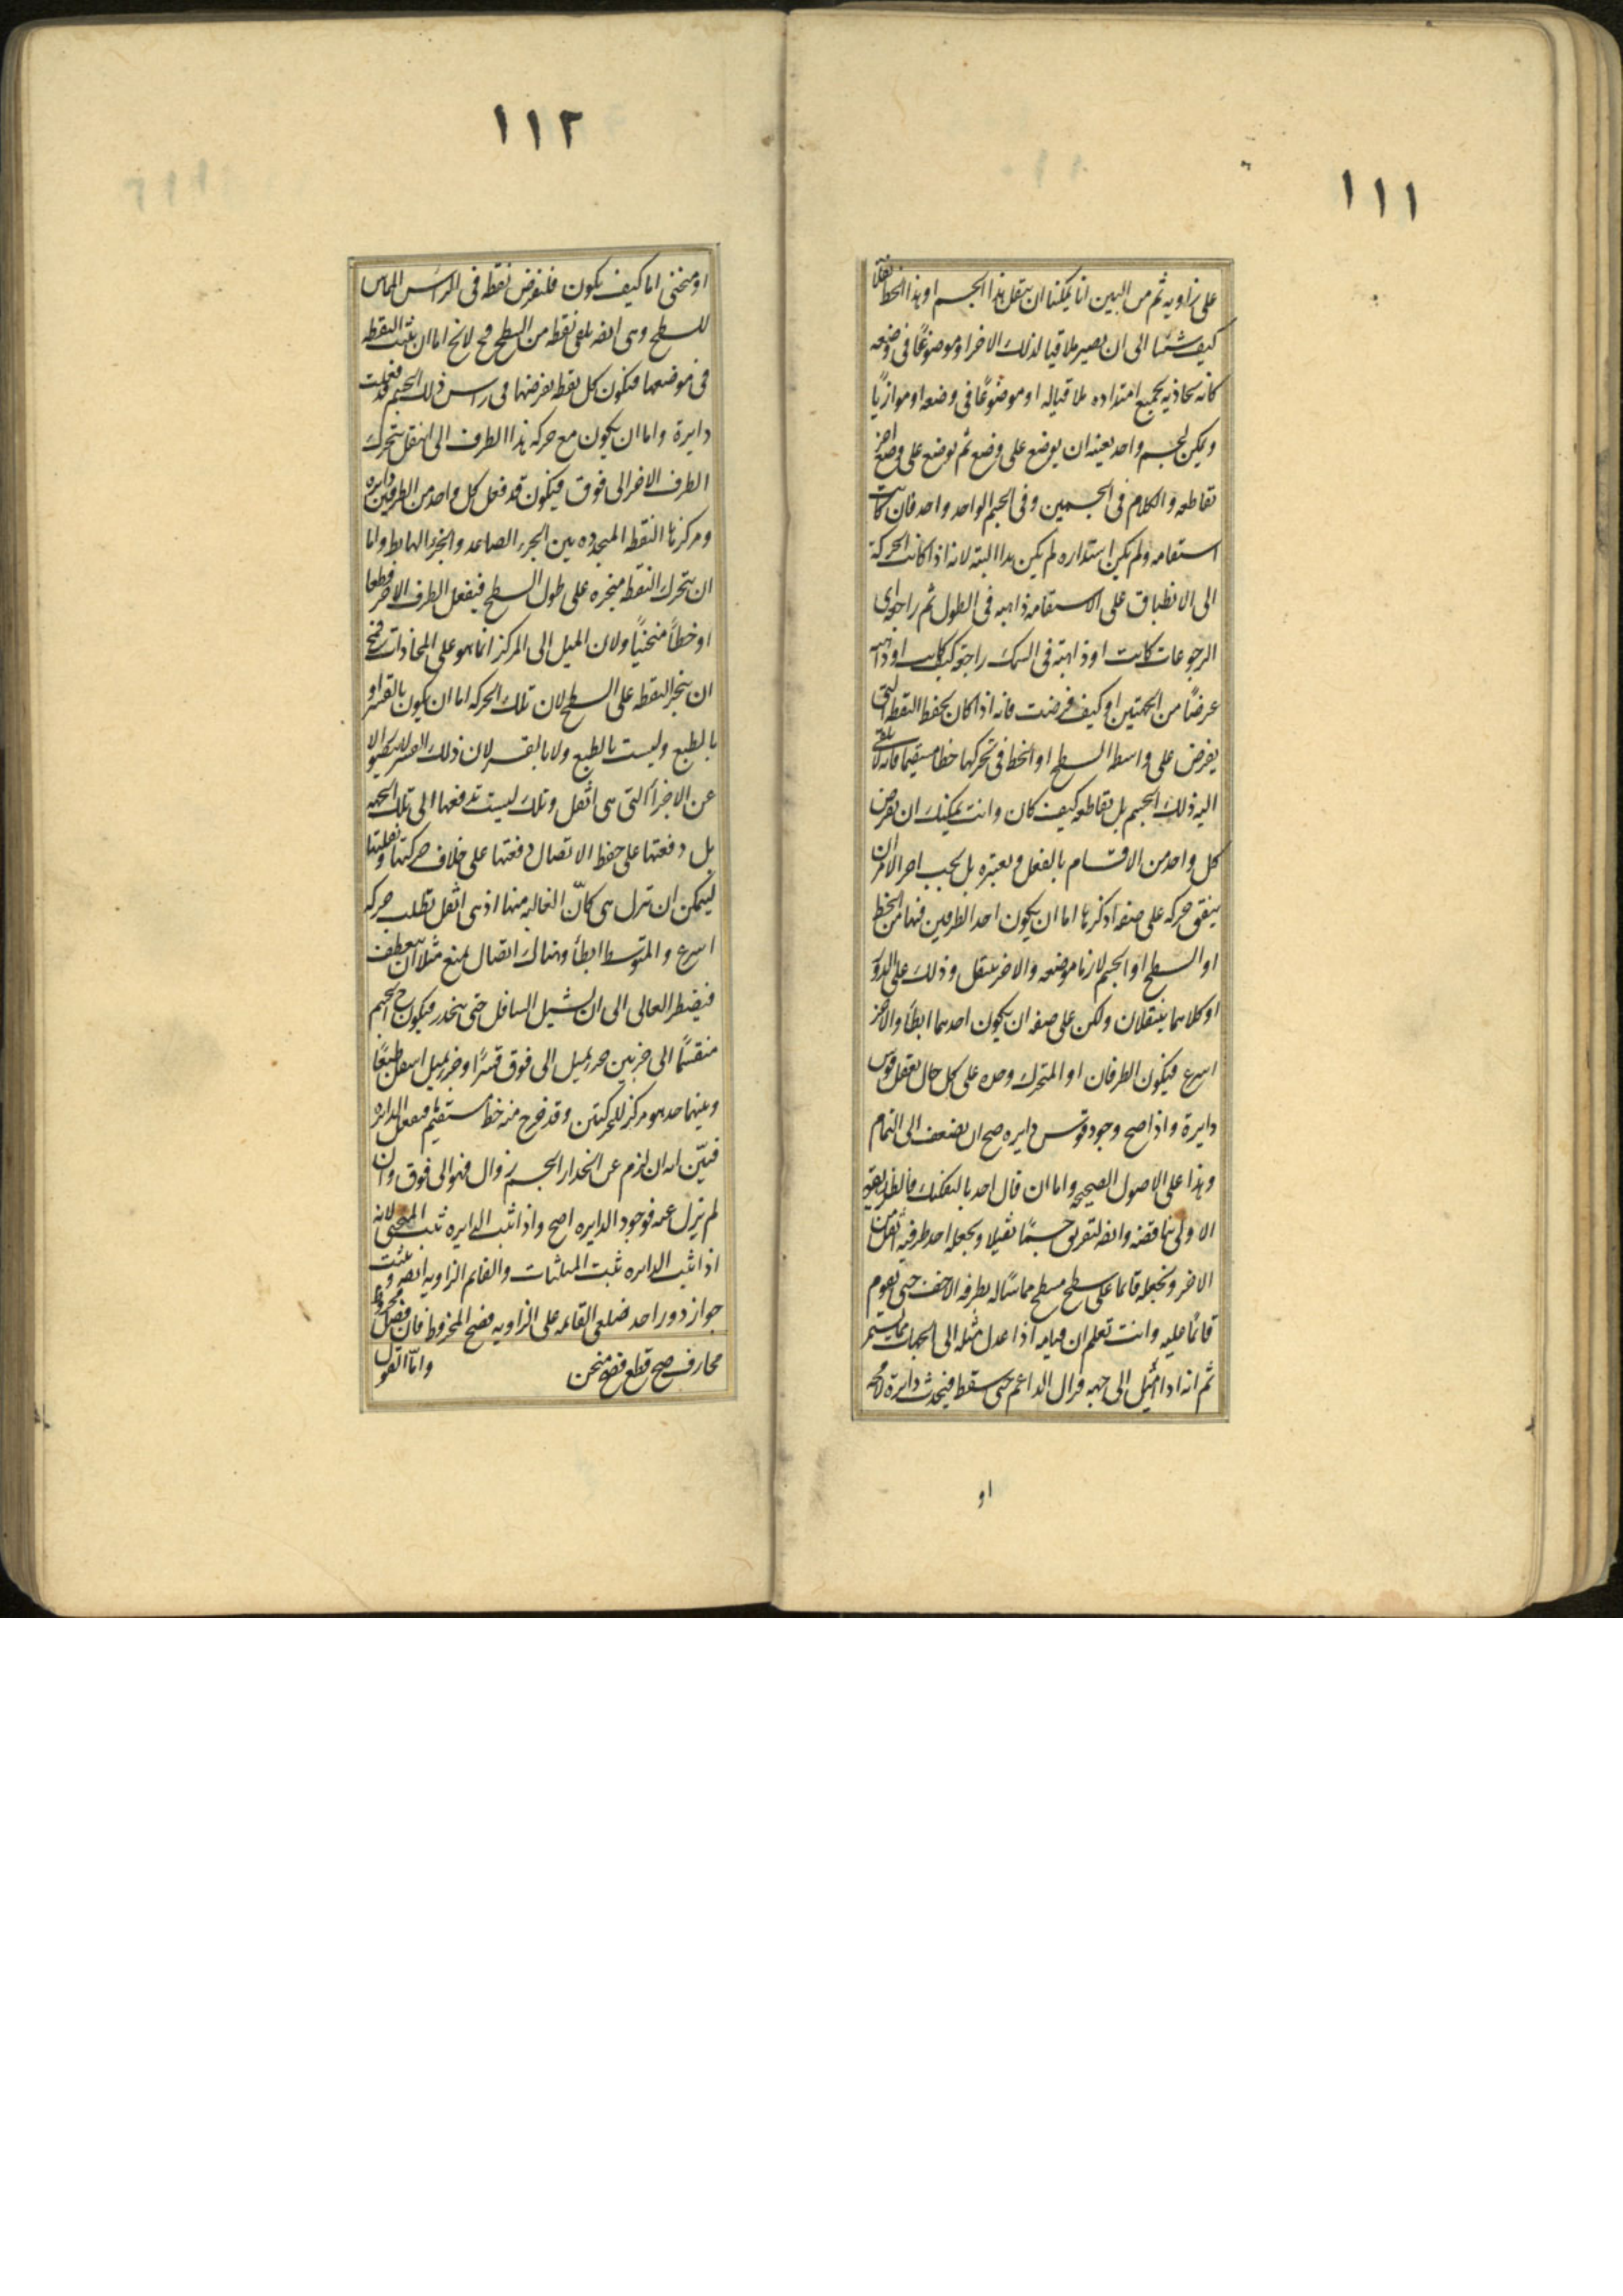 ١١١
على زاويه ثم من البين انا يمكننا ان ننقل هذا الجسم او هذا الخط نقلا
كيف شئنا الى ان يصير ملاقيا لذلك الاخر او موضوعًا فى وضعه
كانه يحاذيه بجميع امتداده ملاقيا له او موضوعًا فى وضعه او موازيًا
ويمكن لجسم واحد بعينه ان يوضع على وضع ثم يوضع على وضع اخر
تقاطعه والكلام فى الجسمين وفى الجسم الواحد واحد فان كانت
استقامه ولم يكن استداره لم يكن هذا البته لانه اذا كانت الحركة
الى الانطباق على الاستقامه ذاهبه فى الطول ثم راجعه اى
الرجوعات كانت او ذاهبة فى السمك راجعة كيف كانت او ذاهبه
عرضًا من الجهتين او كيف فرضت فانه اذا كان يحفظ النقطه التى
يفرض على واسط السطح او الخط فى تحركها خطا مستقيما فانه لا يلقى
اليه ذلك الجسم بل تقاطعه كيف كان وانت يمكنك ان تفرض
كل واحد من الاقسام بالفعل وتعتبره بل يجب احد الامران
يتفق حركه على صفه اذكرها اما ان يكون احد الطرفين فيها من الخط
او السطح او الجسم لازما موضعه والاخر ينتقل وذلك على الدور
او كلاهما ينتقلان ولكن على صفه ان يكون احدهما ابطأ والاخر
اسرع فيكون الطرفان او المتحرك وحده على كل حال يفعل قوس
دايرة واذا صح وجود قوس دايره صح ان يضعف الى التمام
وهذا على الاصول الصحيحه واما ان قال احد بالتفكيك فالطريقه
الاولى تناقضه وايضه لنفرض جسمًا ثقيلا ونجعل احد طرفيه اثقل من
الاخر ونجعله قائما على سطح مسطح مماسًا له بطرفه الاخف حتى يقوم
قائمًا عليه وانت تعلم ان قيامه اذا عدل مثله الى الجهات مما يستمر
ثم انه اذا اميل الى جهه وزال الداعم حتى سقط فيحدث دايرة لا محه
او
١١٢
او منحنى اما كيف يكون فلنفرض نقطه فى الراس المماس
للسطح وهى ايضه يلقى نقطه من السطح فح لا يخ اما ان يثبت النقطه
فى موضعها فيكون كل نقطه نفرضها فى راس ذلك الجسم قد فعلت
دايرة واما ان يكون مع حركه هذا الطرف الى اسفل يتحرك
الطرف الاخر الى فوق فيكون قد فعل كل واحد من الطرفين دايره
ومركزها النقطه المتحدده بين الجزء الصاعد والجزء الهابط واما
ان يتحرك النقطه منجره على طول السطح فيفعل الطرف الاخر قطعا
او خطًا منحنيًا ولان الميل الى المركز انما هو على المحاذات فمح
ان ينجر النقطه على السطح لان تلك الحركه اما ان يكون بالقسر او
بالطبع وليست بالطبع ولا بالقسر لان ذلك القسر لا يتصور الا
عن الاجزأ التى هى اثقل وتلك ليست تدفعها الى تلك الجهه
بل دفعتها على حفظ الاتصال دفعتها على خلاف حركتها ونقلتها
ليمكن ان تنزل هى كأن الغاليه منها اذ هى اثقل تطلب حركه
اسرع والمتوسط ابطأ وهناك اتصال يمنع مثلا ان ينعطف
فيضطر العالى الى ان يشيل السافل حتى ينحدر فيكون ح الجسم
منقسمًا الى جزئين جزء يميل الى فوق قسرًا وجزء يميل اسفل طبعًا
وبينهما حد هو مركز للحركتين وقد خرج منه خط مستقيم فيفعل الدايره
فبيّن انه ان لزم عن انحدار الجسم زوال فهو الى فوق وان
لم يزل عنه فوجود الدايره اصح واذا ثبت الدايره ثبت المنحنى لانه
اذا ثبت الدايره ثبت المثلثات والقائم الزاويه ايضه وثبت
جواز دور احد ضلعى القائمه على الزاويه فصح المخروط فان فصل مخروط
محارف صح قطع فصح منحن وامّا القول